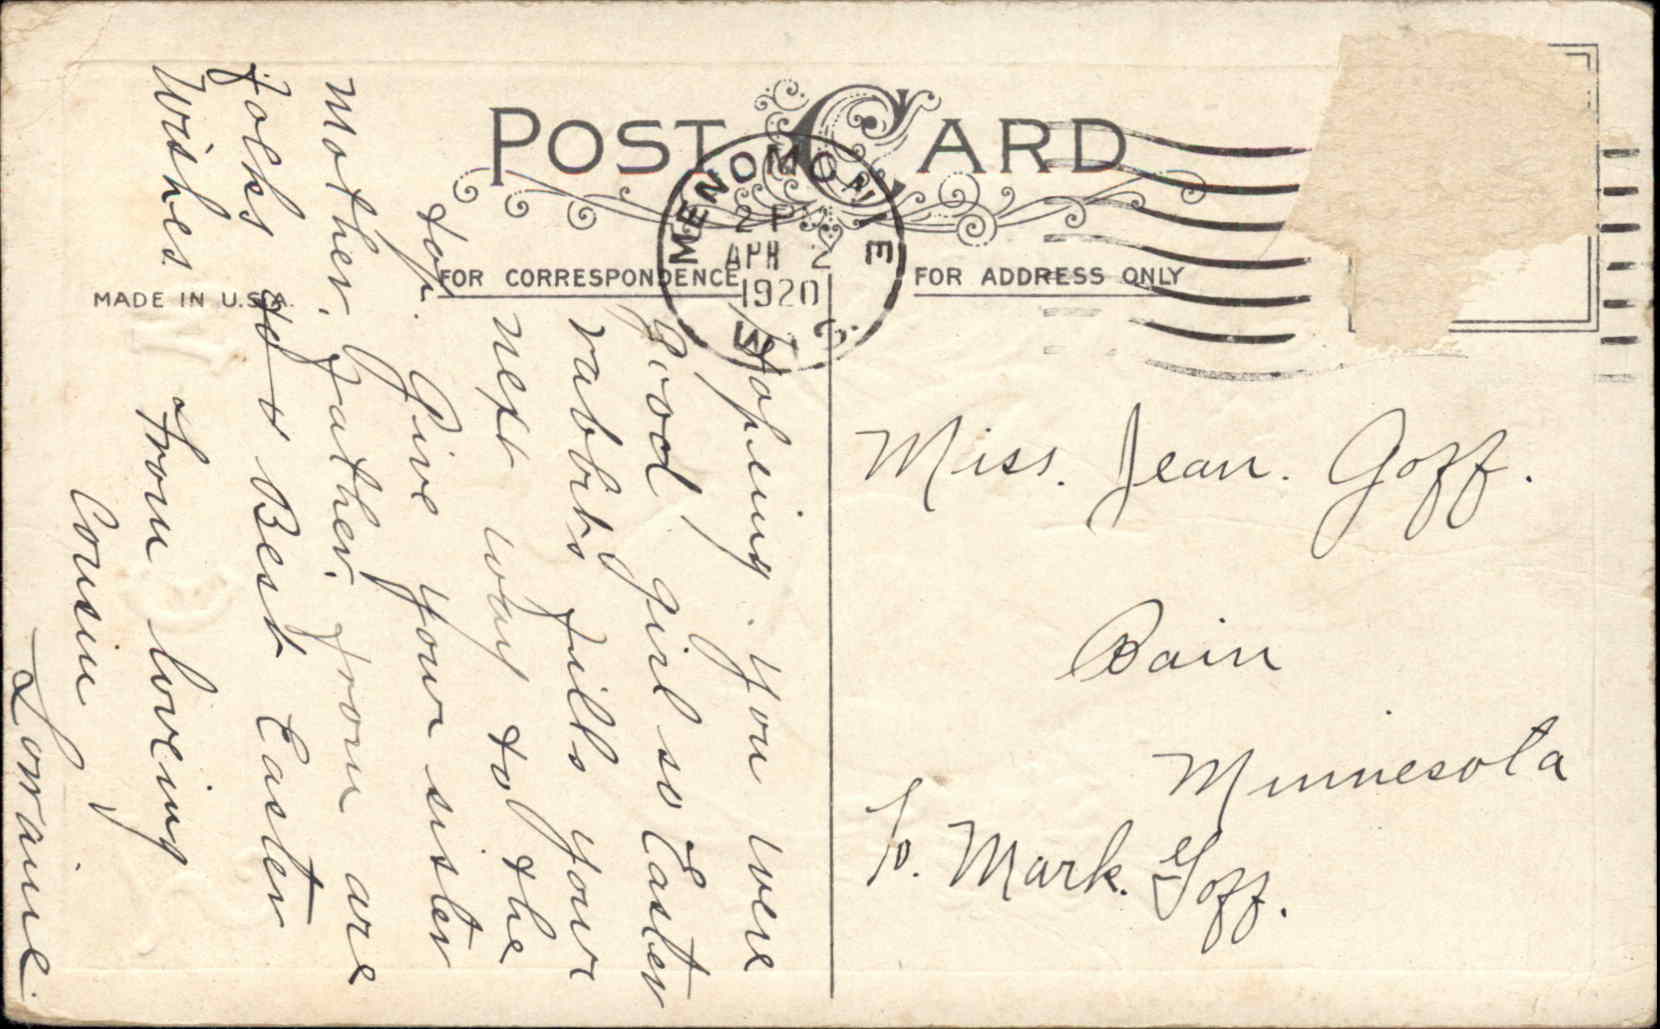 POST CARD
MENOMONIE
2 PM
APR 2
1920
WIS
FOR CORRESPONDENCE
FOR ADDRESS ONLY
MADE IN U.S.A.
Hoping you were
Good girl so Easter
rabbits fills your
nest way to the
top. Give your sister
Mother, Father. from are
folks & Best Easter
Wishes From loving
Cousin
Lorraine.
Miss. Jean. Goff.
Bain
Minnesota
To. Mark. Goff.